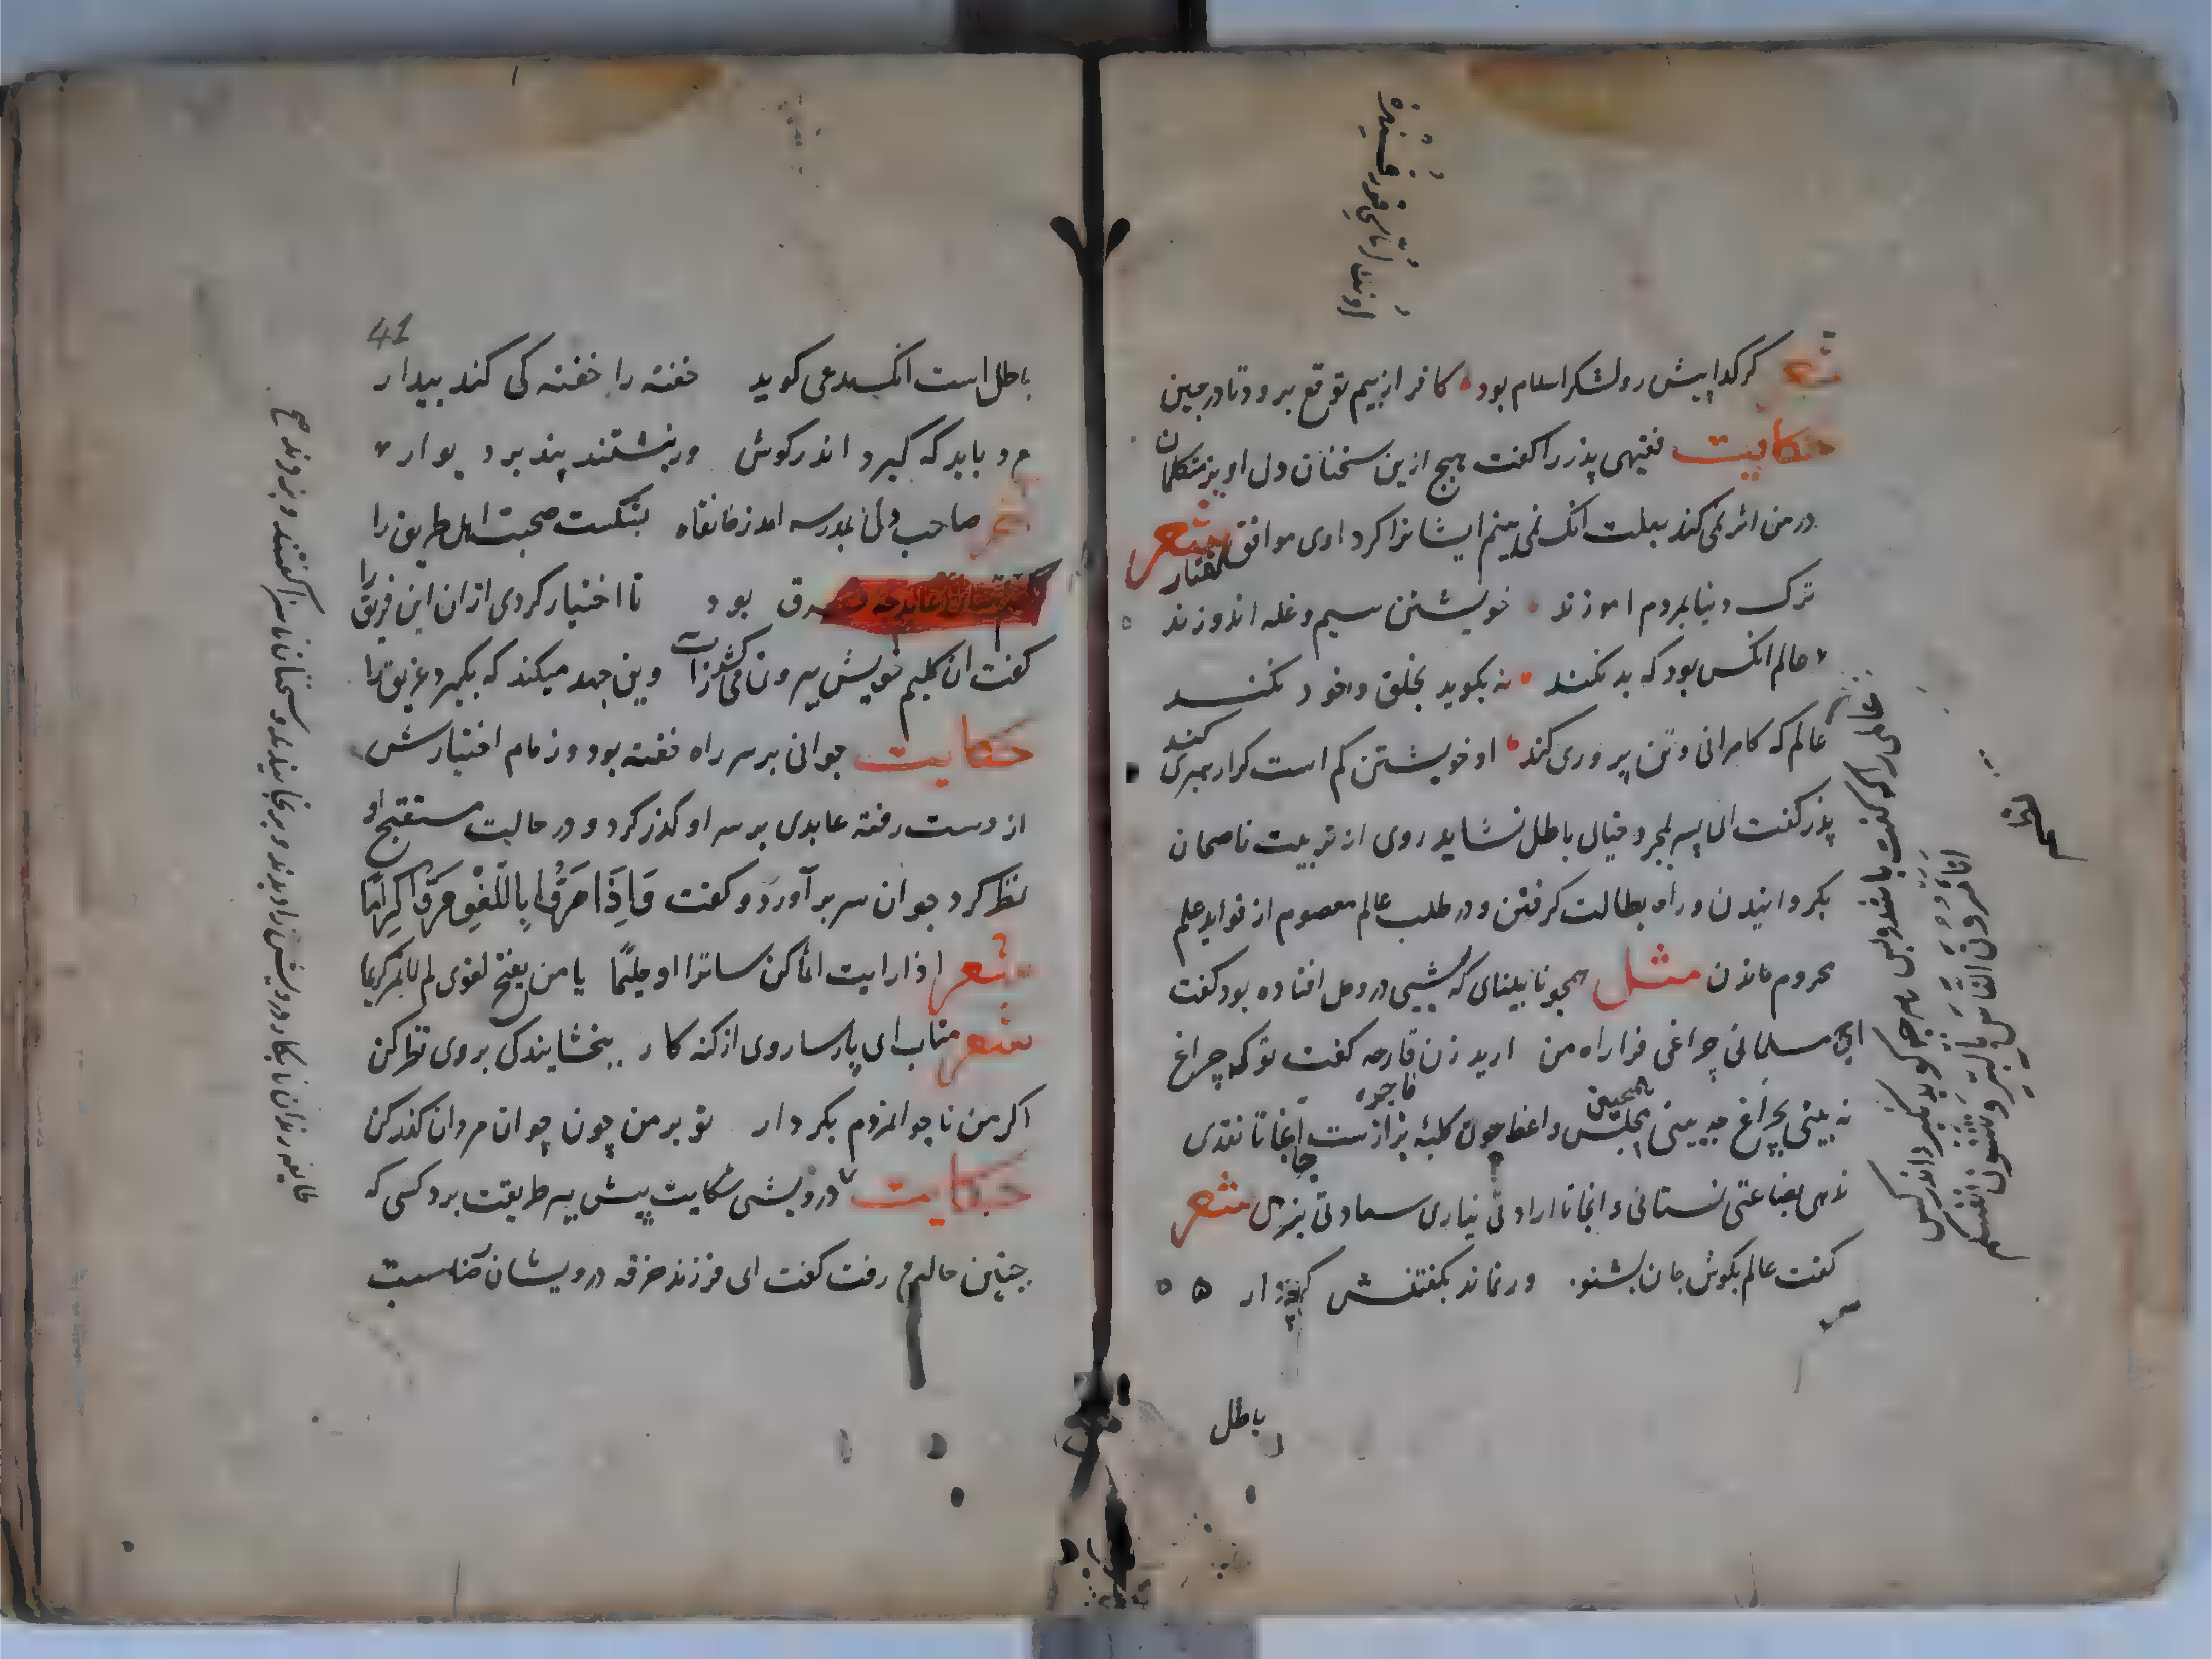 شعر گر گدا پیش رو لشکر اسلام بود کافر از بیم توقع برود تا در چین
حکایت فقیهی پذر را کفت هیچ ازین سخنان دل اویز متکلمان
در من اثر نمی کند بعلت انک نمی بینم ایشانرا کرداری موافق گفتار شعر
ترک دنیا بمردم اموزند خویشتن سیم و غله اندوزند
عالم انکس بود که بد نکند نه بکوید بخلق و خود نکند
عالم که کامرانی و تن پروری کند او خویشتن کم است کرا رهبری کند
پذر کفت ای پسر بمجرد خیال باطل نشاید روی از تربیت ناصحان
بکردانیدن و راه بطالت کرفتن و در طلب عالم معصوم از فواید علم
محروم ماندن مثل همچو نابینای که شبی در وحل افتاده بود کفت
ای مسلمانی چراغی فرا راه من ارید زن فارحه کفت تو که چراغ
فاجره
نه بینی بچراغ چه بینی همچنین مجلس واعظ چون کلبه بزازست آنجا تا نقدی
ندهی بضاعتی نستانی و اینجا تا ارادتی نیاری سعادتی نبری شعر
کفت عالم بکوش جان بشنو ور نماند بکفتنش کردار
باطل
عالمی را که کفت باشد و بس هرچه کوید نکیرد اندر کس
اتأمرون الناس بالبر وتنسون انفسکم
41
باطل است انک مدعی کوید خفته را خفته کی کند بیدار
مرد باید که گیرد اندر کوش ور نبشتند پند بر دیوار
صاحب دلی بمدرسه امد ز خانقاه بشکست صحبت اهل طریق را
کفتم میان عابد چه فرق بود تا اختیار کردی ازان این فریق را
کفت ان کلیم خویش بیرون می کشد ز آب وین جهد میکند که بکیرد غریق را
حکایت جوانی بر سر راه خفته بود و زمام اختیارش
از دست رفته عابدی بر سر او کذر کرد و در حالت مستقبح او
نظر کرد جوان سر بر آورد و کفت وَاِذَا مَرُّوا بِاللَّغْوِ مَرُّوا کِرَامًا
شعر اذا رایت اثما کن ساترا او حلیمًا یا من یقبح لغوی لم لا تمر کریما
شعر متاب ای پارسا روی از کنه کار ببخشایندکی بر وی نظر کن
اکر من ناجوانمردم بکردار تو بر من چون جوان مردان کذر کن
حکایت درویشی شکایت پیش پیر طریقت برد کسی که
چنین حالم رفت کفت ای فرزند خرقه درویشان
طایفه رندان بانکار درویش را دیدند و برنجانیدند و سخنان ناسزا کفتند و بزدند